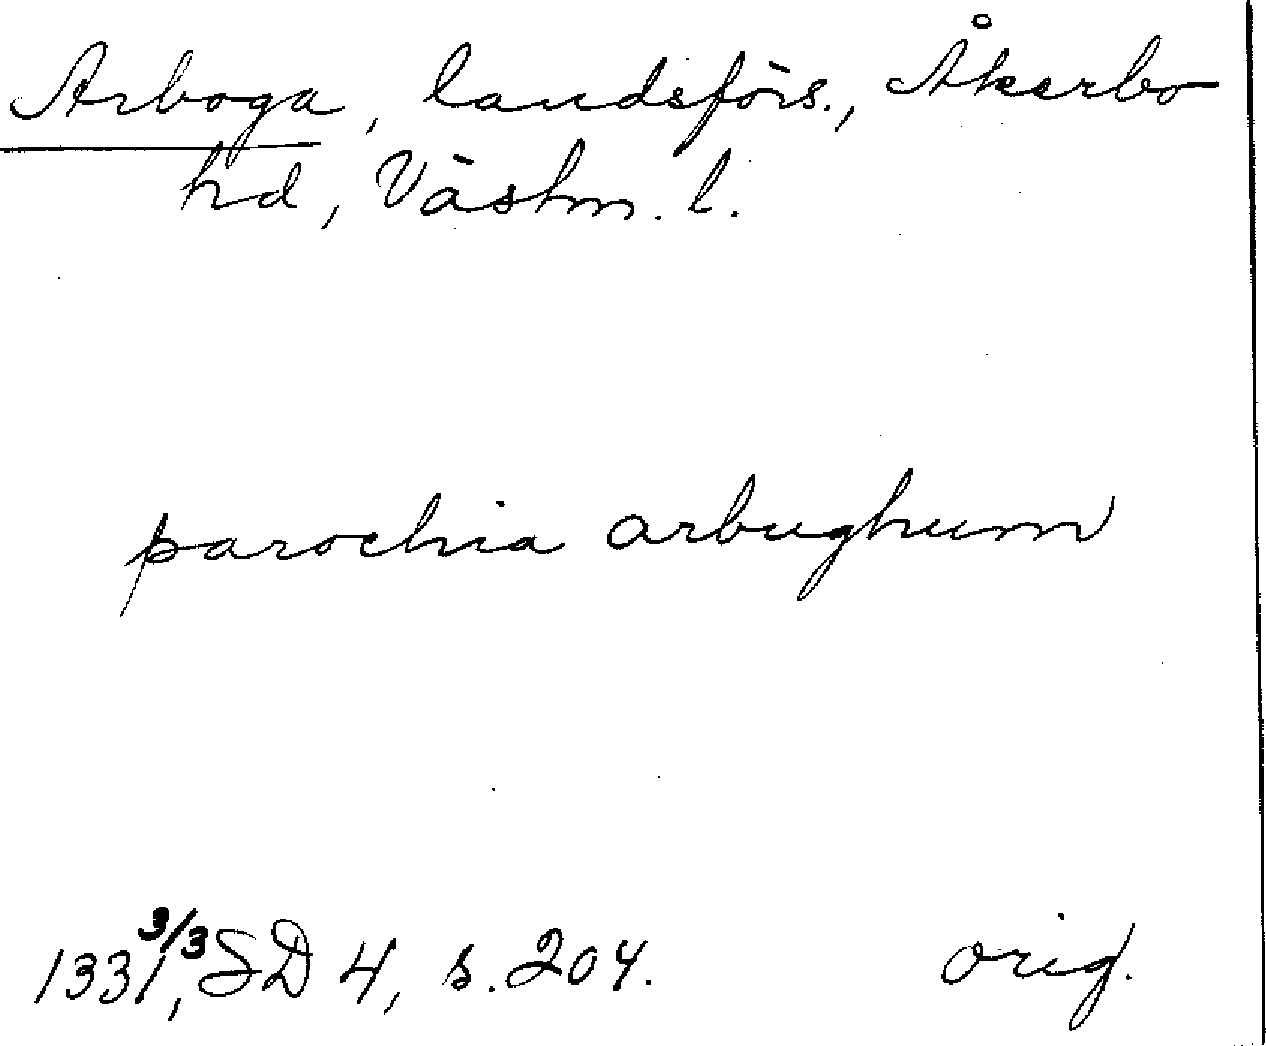 Arboga, landsförs., Åkerbo
hd, Västm. l.
parochia arbughum
1331 3/3, SD 4, s. 204. orig.